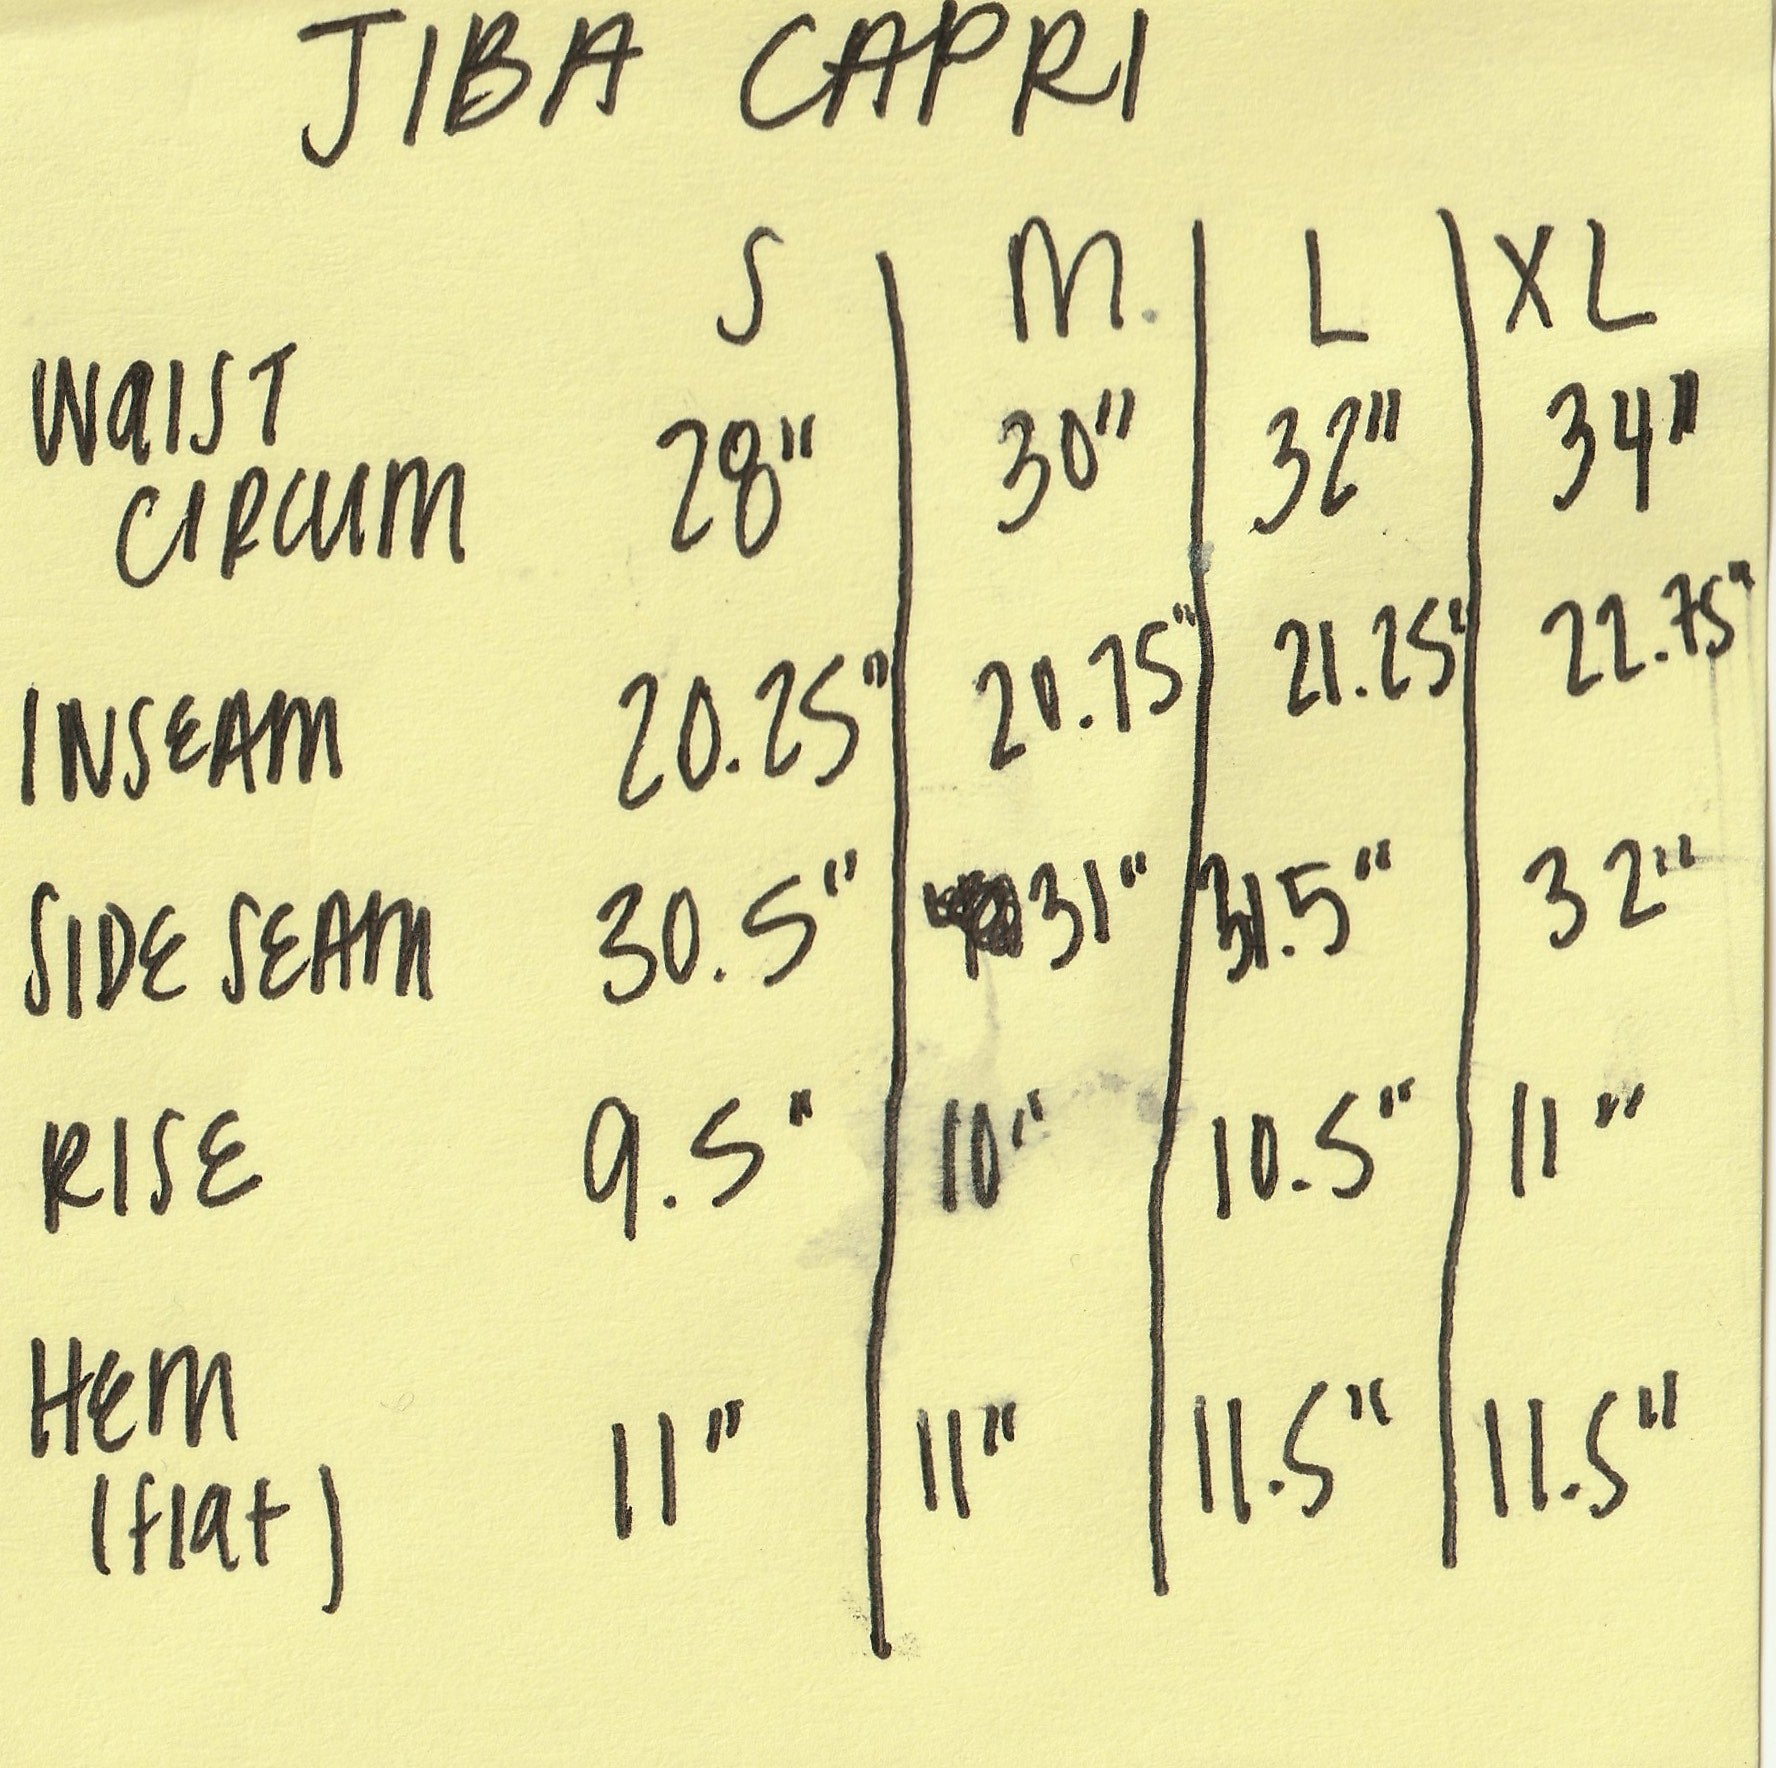 JIBA CAPRI
S M. L XL
WAIST CIRCUM 28" 30" 32" 34"
INSEAM 20.25" 20.75" 21.25" 22.75"
SIDE SEAM 30.5" 31" 31.5" 32"
RISE 9.5" 10" 10.5" 11"
HEM (flat) 11" 11" 11.5" 11.5"